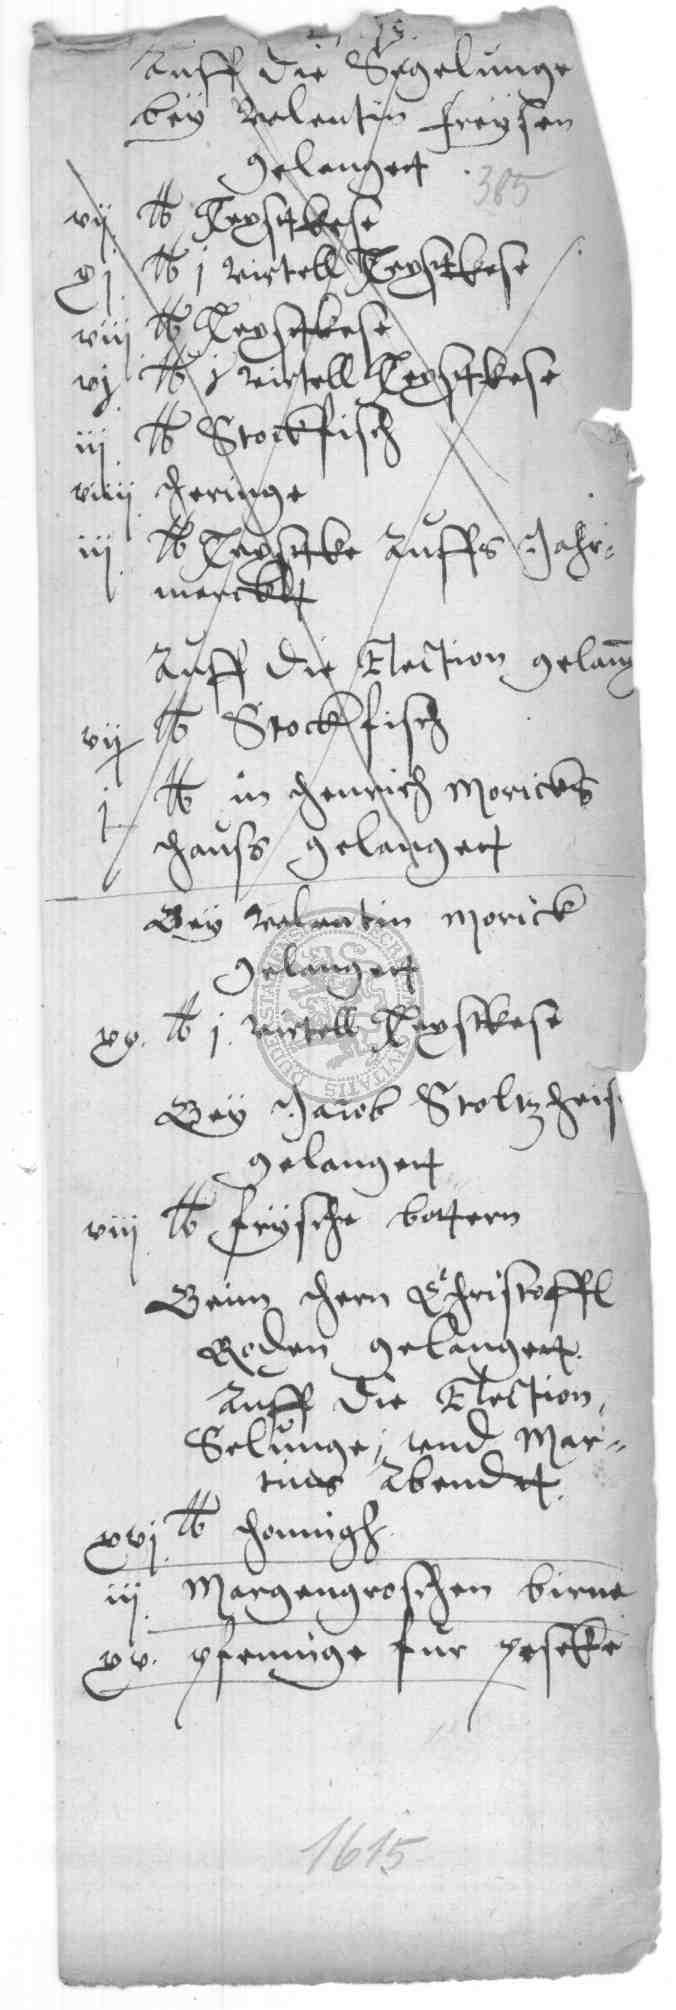 Auff die Segelunge
bey Valentin freysen
gelangert
385
vij ℔ Reystkese
xj ℔ j virtell Reystkese
viij ℔ Reystkese
vj ℔ j virtell Reystkese
iij ℔ Stockfisch
viiij heringe
iij ℔ Auffs Jahr-
merckt
Auff die Election gelang
vij ℔ Stockfisch
j ℔ in henrich Moricks
hauss gelangert
Bey Valentin Morick
gelangert
xv. ℔ j. virtell Reystkese
Bey Jacob
gelangert
viij ℔ frysche bottern
Beim hern Christoffl
Roden gelangert.
Auff die Election,
Selunge, und Mar-
tins Abendt.
xvj ℔ honnigh
iij Margengroschen birne
xv. pfenninge fur
1615